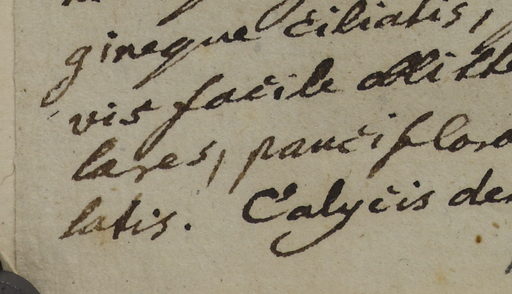 gineque ciliatis,
vis facile oblitte
lares, pauciflora
latis. Calycis den